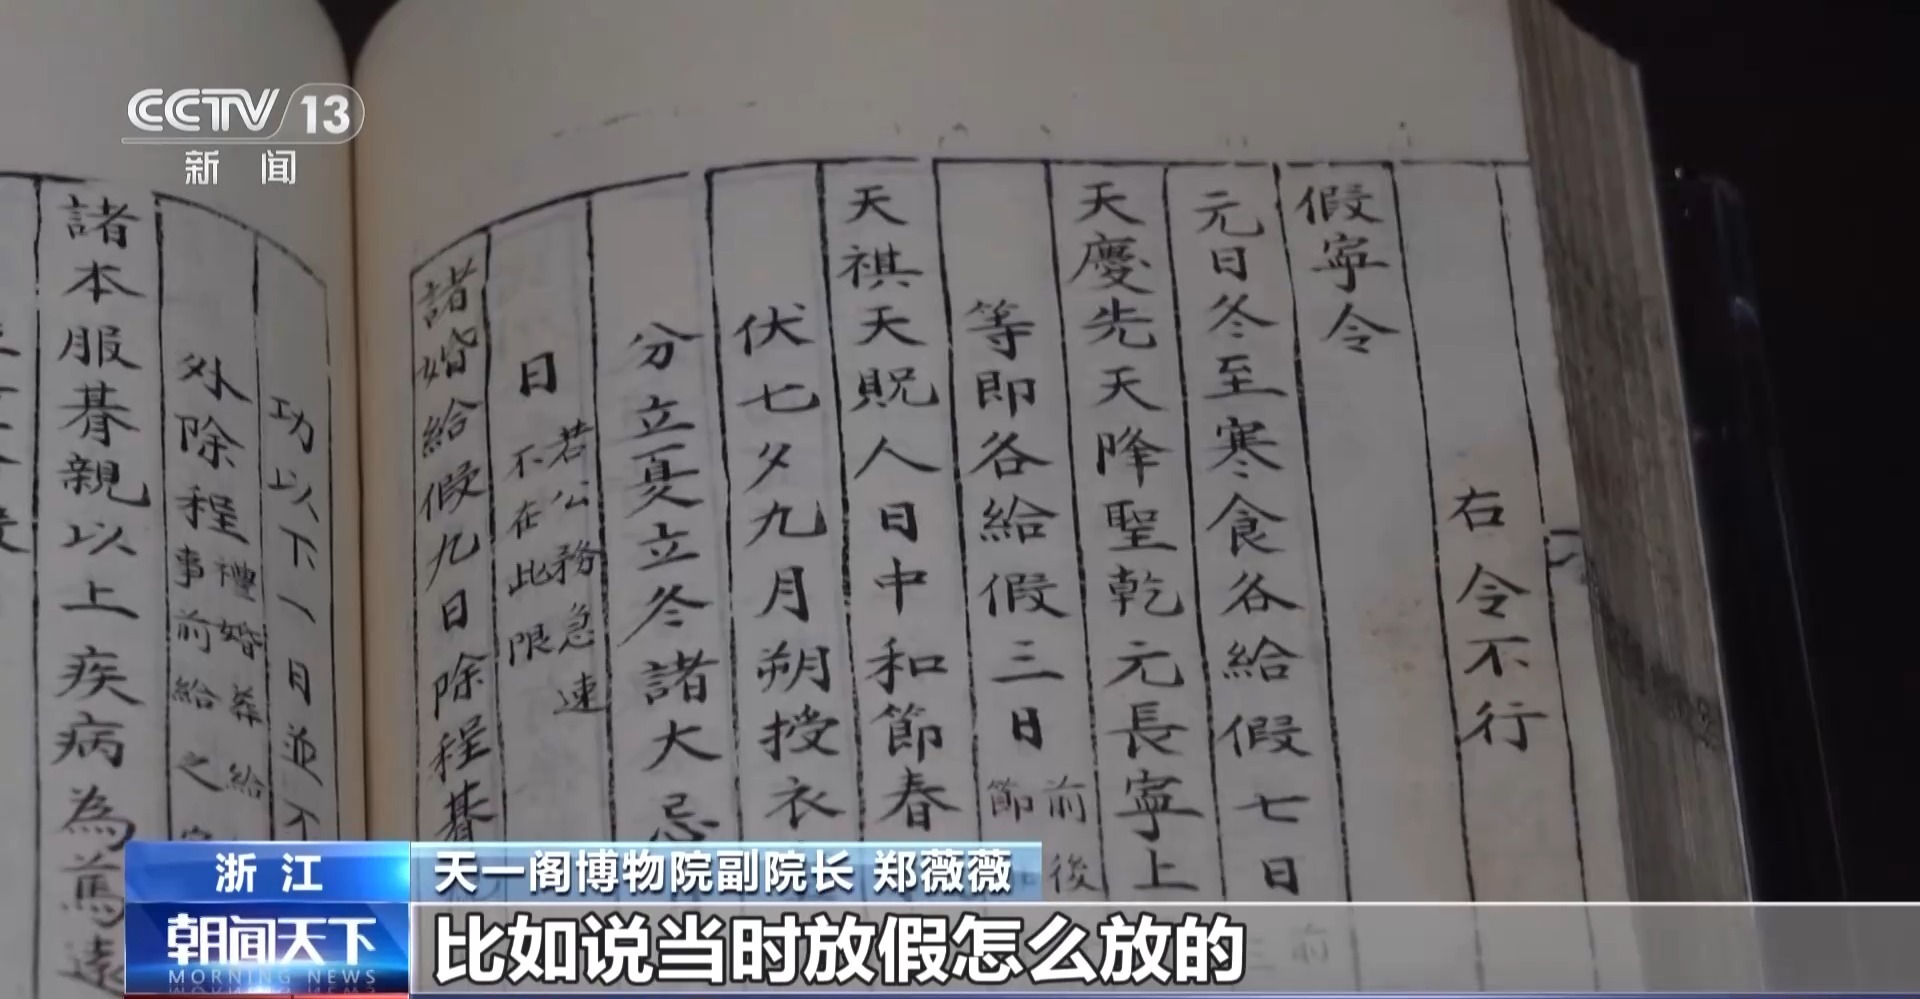 CCTV 13
新闻
右令不行
假寧令
元日冬至寒食各給假七日
前
三
天慶先天降聖乾元長寧上
等即各給假三日
前後
節
天祺天貺人日中和節春
伏七夕九月朔授衣
分立夏立冬諸大忌
日
若公務急速
不在此限
諸婚給假九日除程朞
功以下一日並不
外除程
禮婚葬給
事前給之
諸本服朞親以上疾病為篤遠
浙江
天一阁博物院副院长 郑薇薇
朝闻天下
MORNING NEWS
比如说当时放假怎么放的